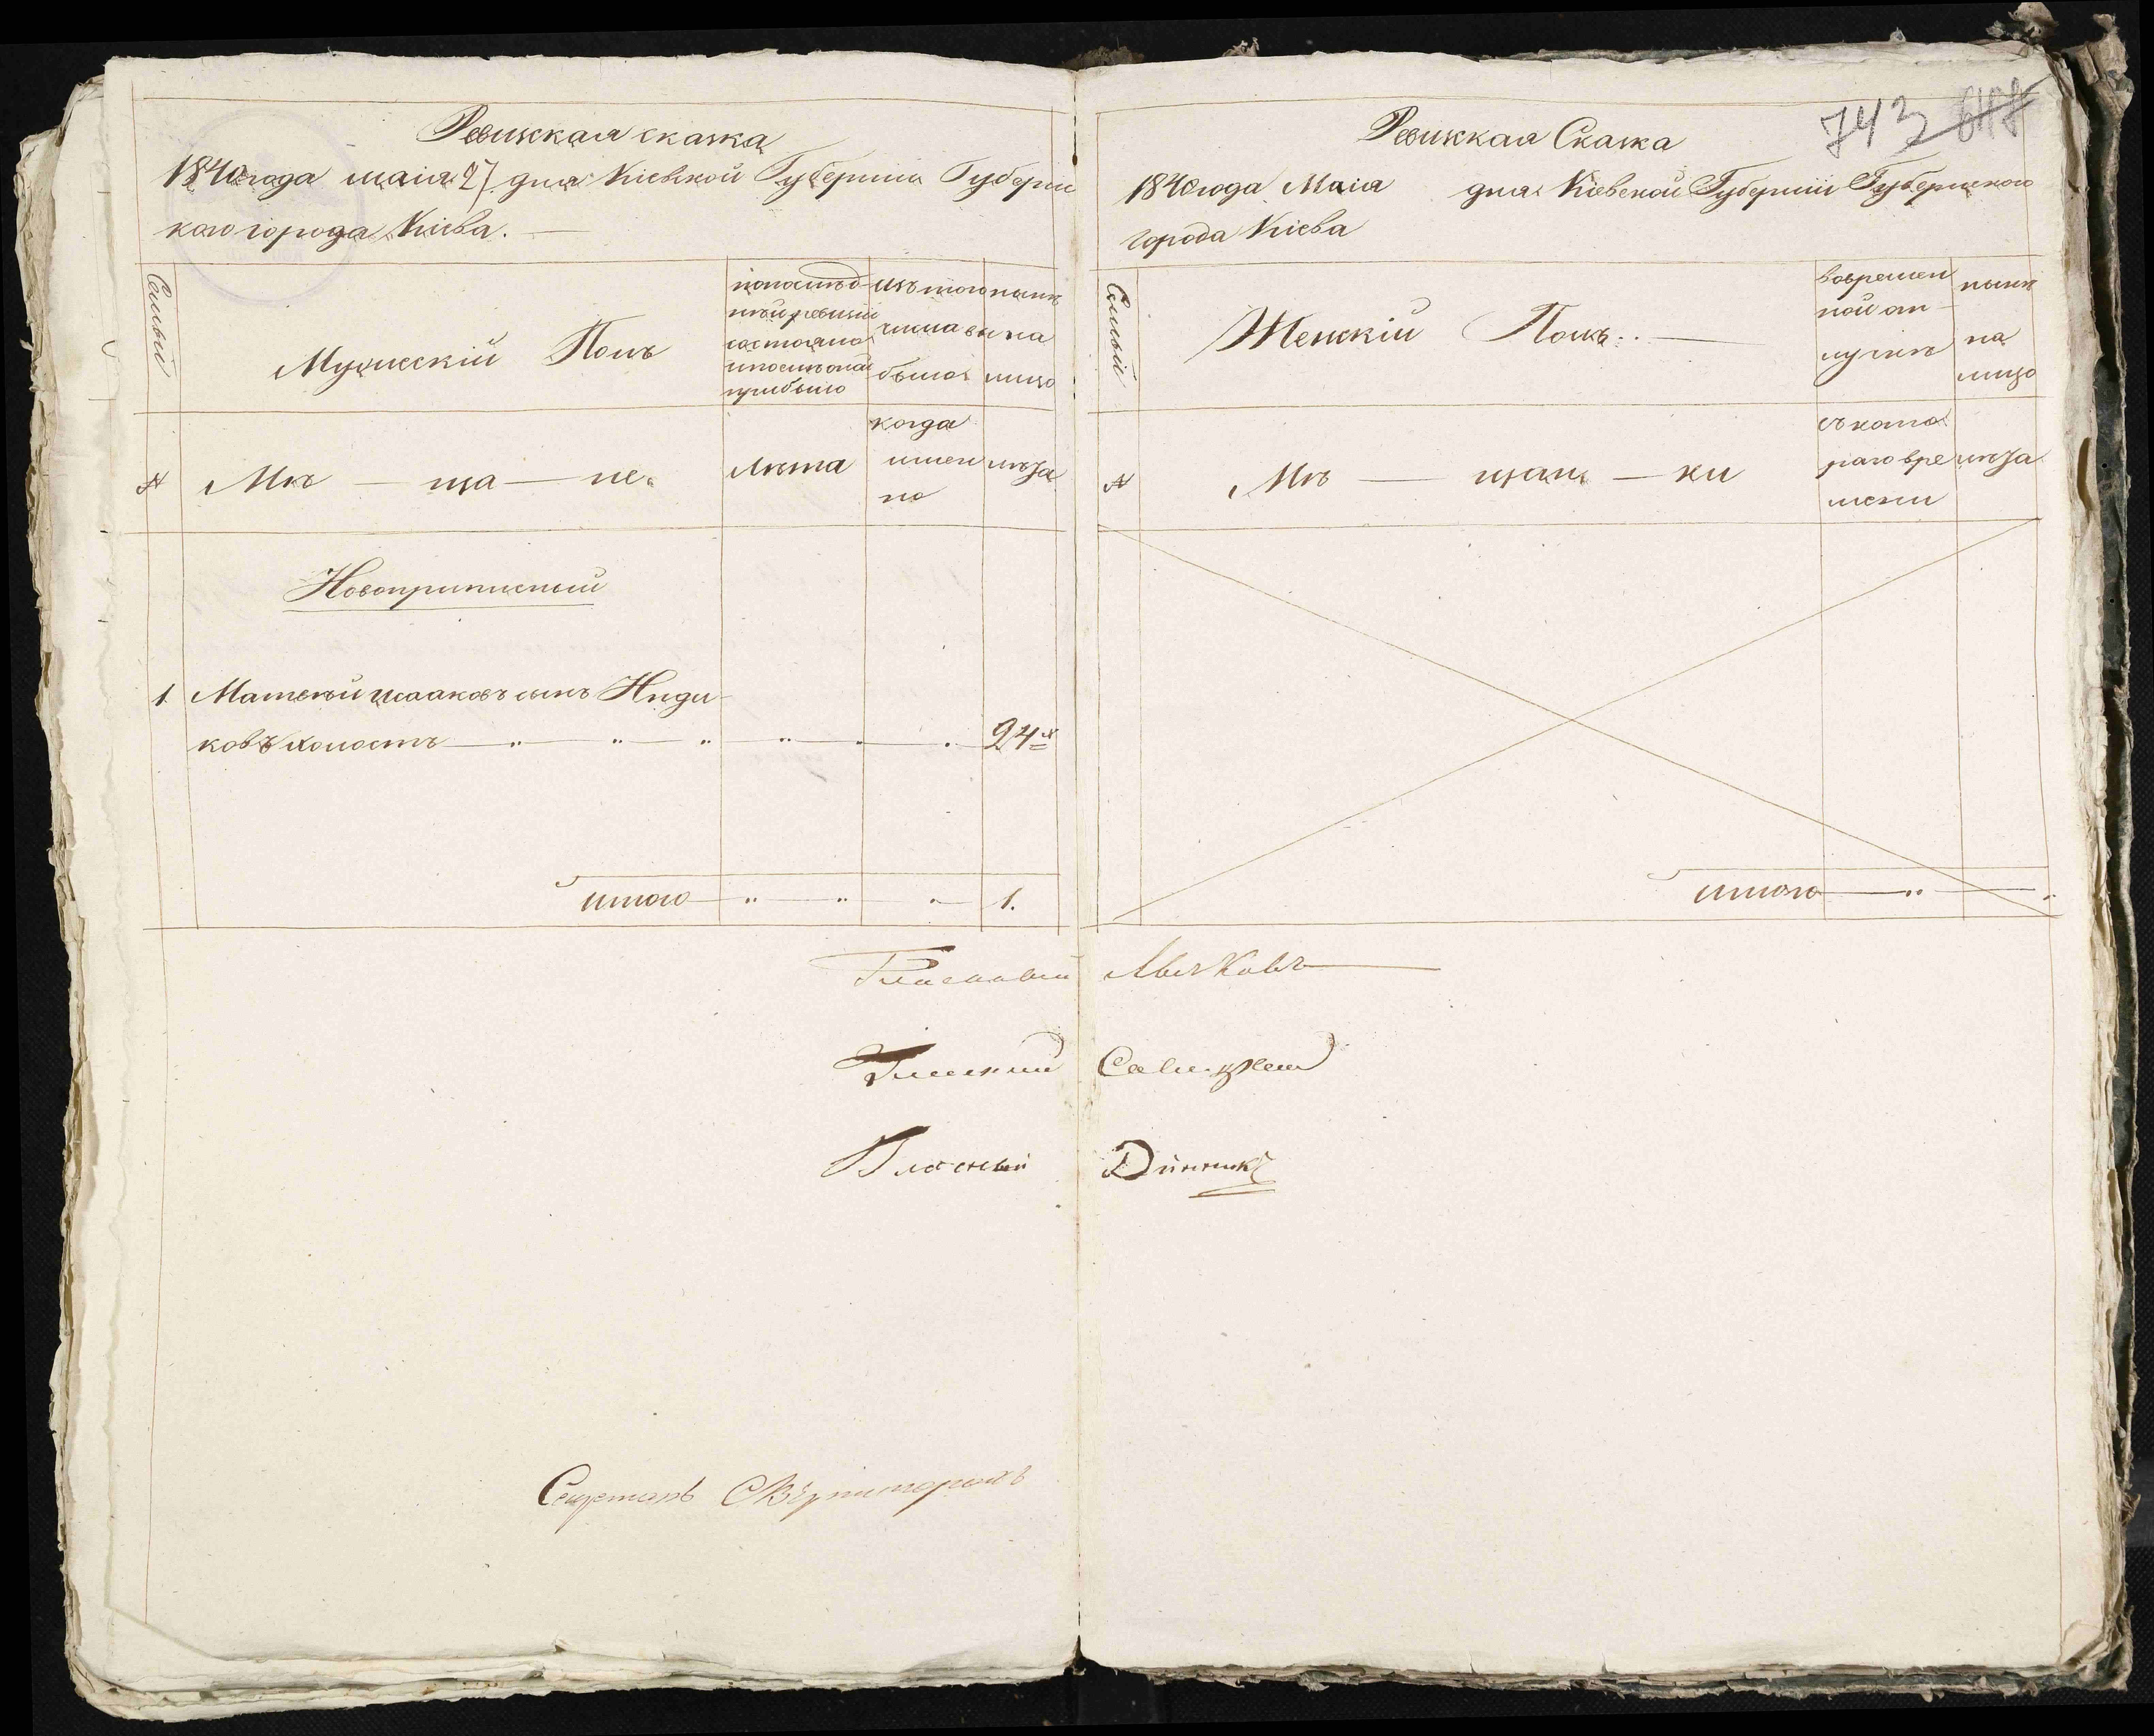 Ревизская сказка
1840 года маия 27 дня Киевской Губернии Губерн
кого города Киева.
Семьи
Мужеский Полъ
по послѣд
ней ревизіи
состояло
и после оной
прибыло
изъ того
числа вы
было
нынѣ
на
лицо
№
Мѣ — ща — не.
Лѣта
когда
имен
но
лѣта
Новоприписный
1 Матвѣй Исааковъ сынъ Инди-
ковъ холостъ 24
итого 1.
743 648
Ревизская Сказка
1840 года Маія дня Кіевской Губерніи Губернского
города Кіева
Семьи
Женскій Полъ
во времен
ной от-
лучке
нынѣ
на
лицо
№
Мѣ — щан — ки
съ кото
раго вре
мени
лѣта
итого
Гласный
Гласный
Гласный Динникъ
Секретарь